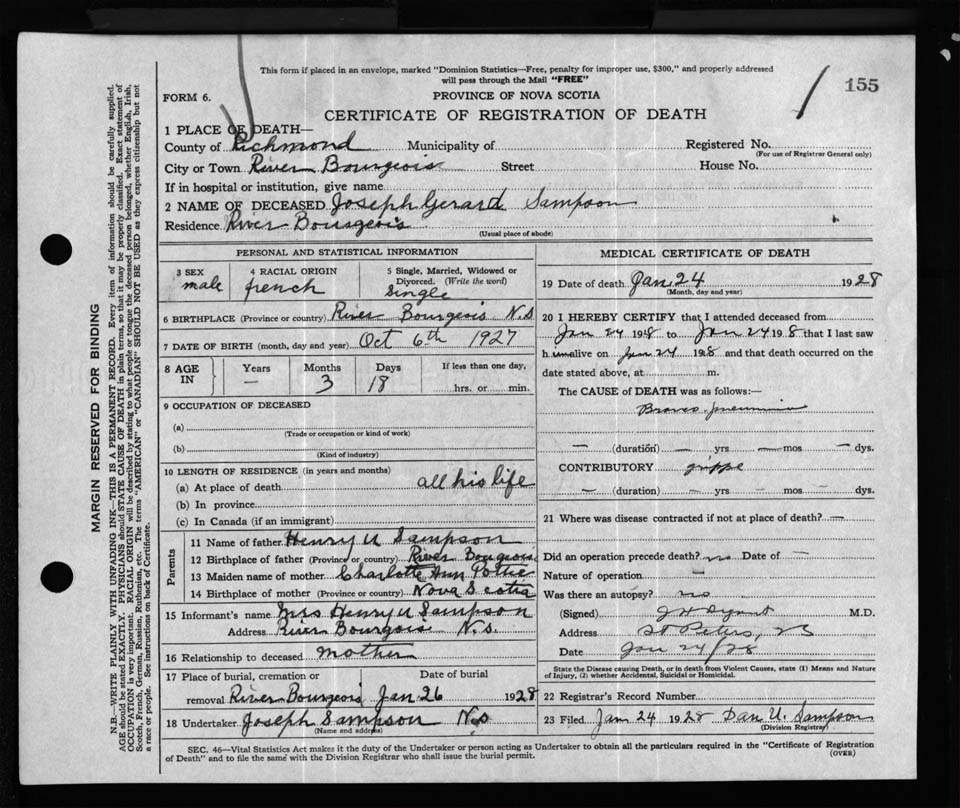 This form if placed in an envelope, marked "Dominion Statistics—Free, penalty for improper use, $300," and properly addressed
will pass through the Mail "FREE"
155
FORM 6.
PROVINCE OF NOVA SCOTIA
CERTIFICATE OF REGISTRATION OF DEATH
1 PLACE OF DEATH—
County of Richmond Municipality of Registered No.
(For use of Registrar General only)
City or Town River Bourgeois Street House No.
If in hospital or institution, give name
2 NAME OF DECEASED Joseph Gerard Sampson
Residence River Bourgeois
(Usual place of abode)
PERSONAL AND STATISTICAL INFORMATION
3 SEX male
4 RACIAL ORIGIN french
5 Single, Married, Widowed or
Divorced. (Write the word)
Single
6 BIRTHPLACE (Province or country) River Bourgeois N.S
7 DATE OF BIRTH (month, day and year) Oct 6th 1927
8 AGE IN Years — Months 3 Days 18 If less than one day,
hrs. or min.
9 OCCUPATION OF DECEASED
(a)
(Trade or occupation or kind of work)
(b)
(Kind of industry)
10 LENGTH OF RESIDENCE (in years and months)
(a) At place of death all his life
(b) In province
(c) In Canada (if an immigrant)
Parents
11 Name of father Henry U Sampson
12 Birthplace of father (Province or country) River Bougeois
13 Maiden name of mother Charlotte Ann Pottie
14 Birthplace of mother (Province or country) Nova Scotia
15 Informant's name Mrs Henry U Sampson
Address River Bourgois N.S.
16 Relationship to deceased mother
17 Place of burial, cremation or Date of burial
removal River Bourgeois Jan 26 1928
18 Undertaker Joseph Sampson N.S
(Name and address)
MEDICAL CERTIFICATE OF DEATH
19 Date of death Jan. 24 1928
(Month, day and year)
20 I HEREBY CERTIFY that I attended deceased from
Jan 24 1928 to Jan 24 1928 that I last saw
him alive on Jan 24 1928 and that death occurred on the
date stated above, at m.
The CAUSE of DEATH was as follows:—
pneumonia
— (duration) — yrs — mos — dys.
CONTRIBUTORY grippe
— (duration) — yrs — mos — dys.
21 Where was disease contracted if not at place of death? —
Did an operation precede death? no Date of —
Nature of operation —
Was there an autopsy? no
(Signed) M.D.
Address St Peters,
Date Jan 24/28
State the Disease causing Death, or in death from Violent Causes, state (1) Means and Nature
of Injury, (2) whether Accidental, Suicidal or Homicidal.
22 Registrar's Record Number
23 Filed Jan 24 1928 Dan U. Sampson
(Division Registrar)
SEC. 46—Vital Statistics Act makes it the duty of the Undertaker or person acting as Undertaker to obtain all the particulars required in the "Certificate of Registration
of Death" and to file the same with the Division Registrar who shall issue the burial permit.
(OVER)
MARGIN RESERVED FOR BINDING
N.B.—WRITE PLAINLY WITH UNFADING INK—THIS IS A PERMANENT RECORD. Every item of information should be carefully supplied.
AGE should be stated EXACTLY. PHYSICIANS should STATE CAUSE OF DEATH in plain terms, so that it may be properly classified. Exact statement of
OCCUPATION is very important. RACIAL ORIGIN will be described by stating to what people or tongue the deceased person belonged, whether English, Irish,
Scotch, French, German, Russian, Ruthenian, etc. The terms "AMERICAN" or "CANADIAN" SHOULD NOT BE USED as they express citizenship but not
a race or people. See instructions on back of Certificate.